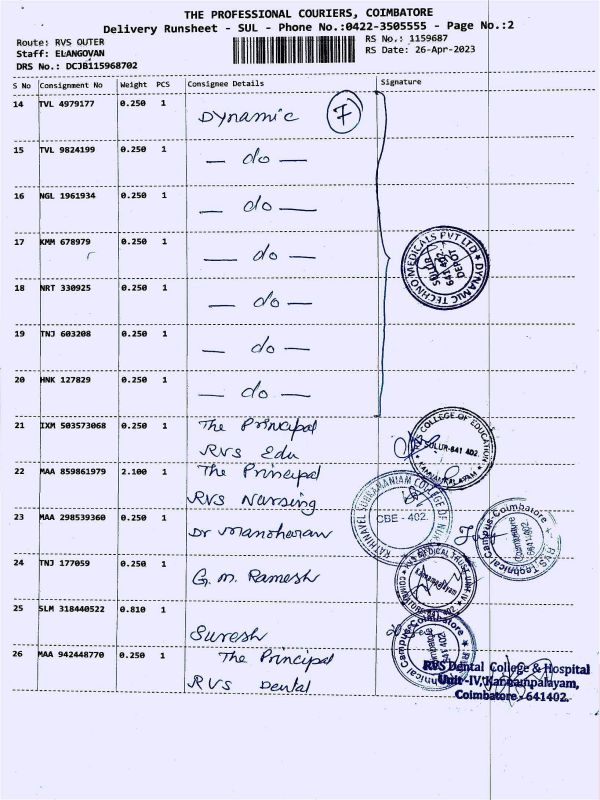 THE PROFESSIONAL COURIERS, COIMBATORE
Delivery Runsheet - SUL - Phone No.:0422-3505555 - Page No.:2
Route: RVS OUTER
RS No.: 1159687
Staff: ELANGOVAN
RS Date: 26-Apr-2023
DRS No.: DCJB115968702
S No Consignment No Weight PCS Consignee Details Signature
14 TVL 4979177 0.250 1 Dynamic 7
15 TVL 9824199 0.250 1 — do —
16 NGL 1961934 0.250 1 — do —
17 KMM 678979 0.250 1 — do —
18 NRT 330925 0.250 1 — do —
19 TNJ 603208 0.250 1 — do —
20 HNK 127829 0.250 1 — do —
DYNAMIC TECHNO MEDICALS PVT LTD
SULUR
641 402
DEPOT
21 IXM 503573068 0.250 1 The Principal
RVS Edu
RVS COLLEGE OF EDUCATION
SULUR-641 402
KANNAMPALAYAM
22 MAA 859861979 2.100 1 The Principal
RVS Nursing
CBE - 402.
23 MAA 298539360 0.250 1 Dr Manoharan
RVS Technical Campus-Coimbatore
Coimbatore
641 402
24 TNJ 177059 0.250 1 G. M. Ramesh
25 SLM 318440522 0.810 1
Suresh
Campus-Coimbatore
26 MAA 942448770 0.250 1 The Principal
RVS Dental
RVS Dental College & Hospital
Unit -IV, Kannampalayam,
Coimbatore - 641402.